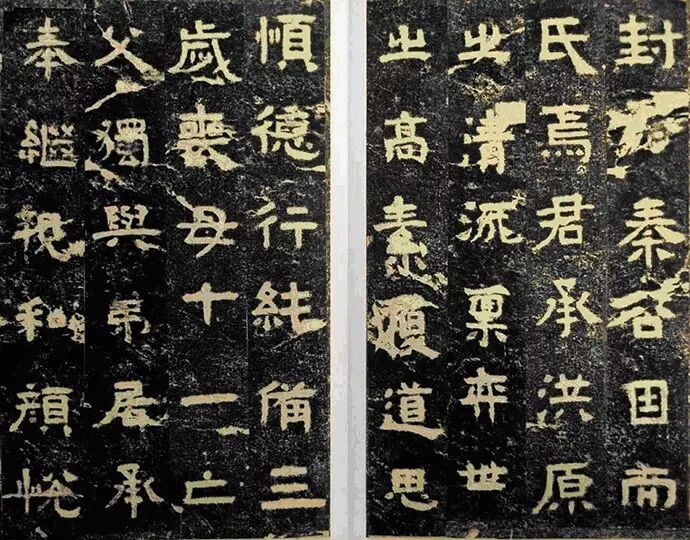 封秦谷因而
氏焉君承洪原
之清流稟弈世
之高素履道思
順德行純備三
歲喪母十一亡
父獨與弟居承
奉繼親和顏悅